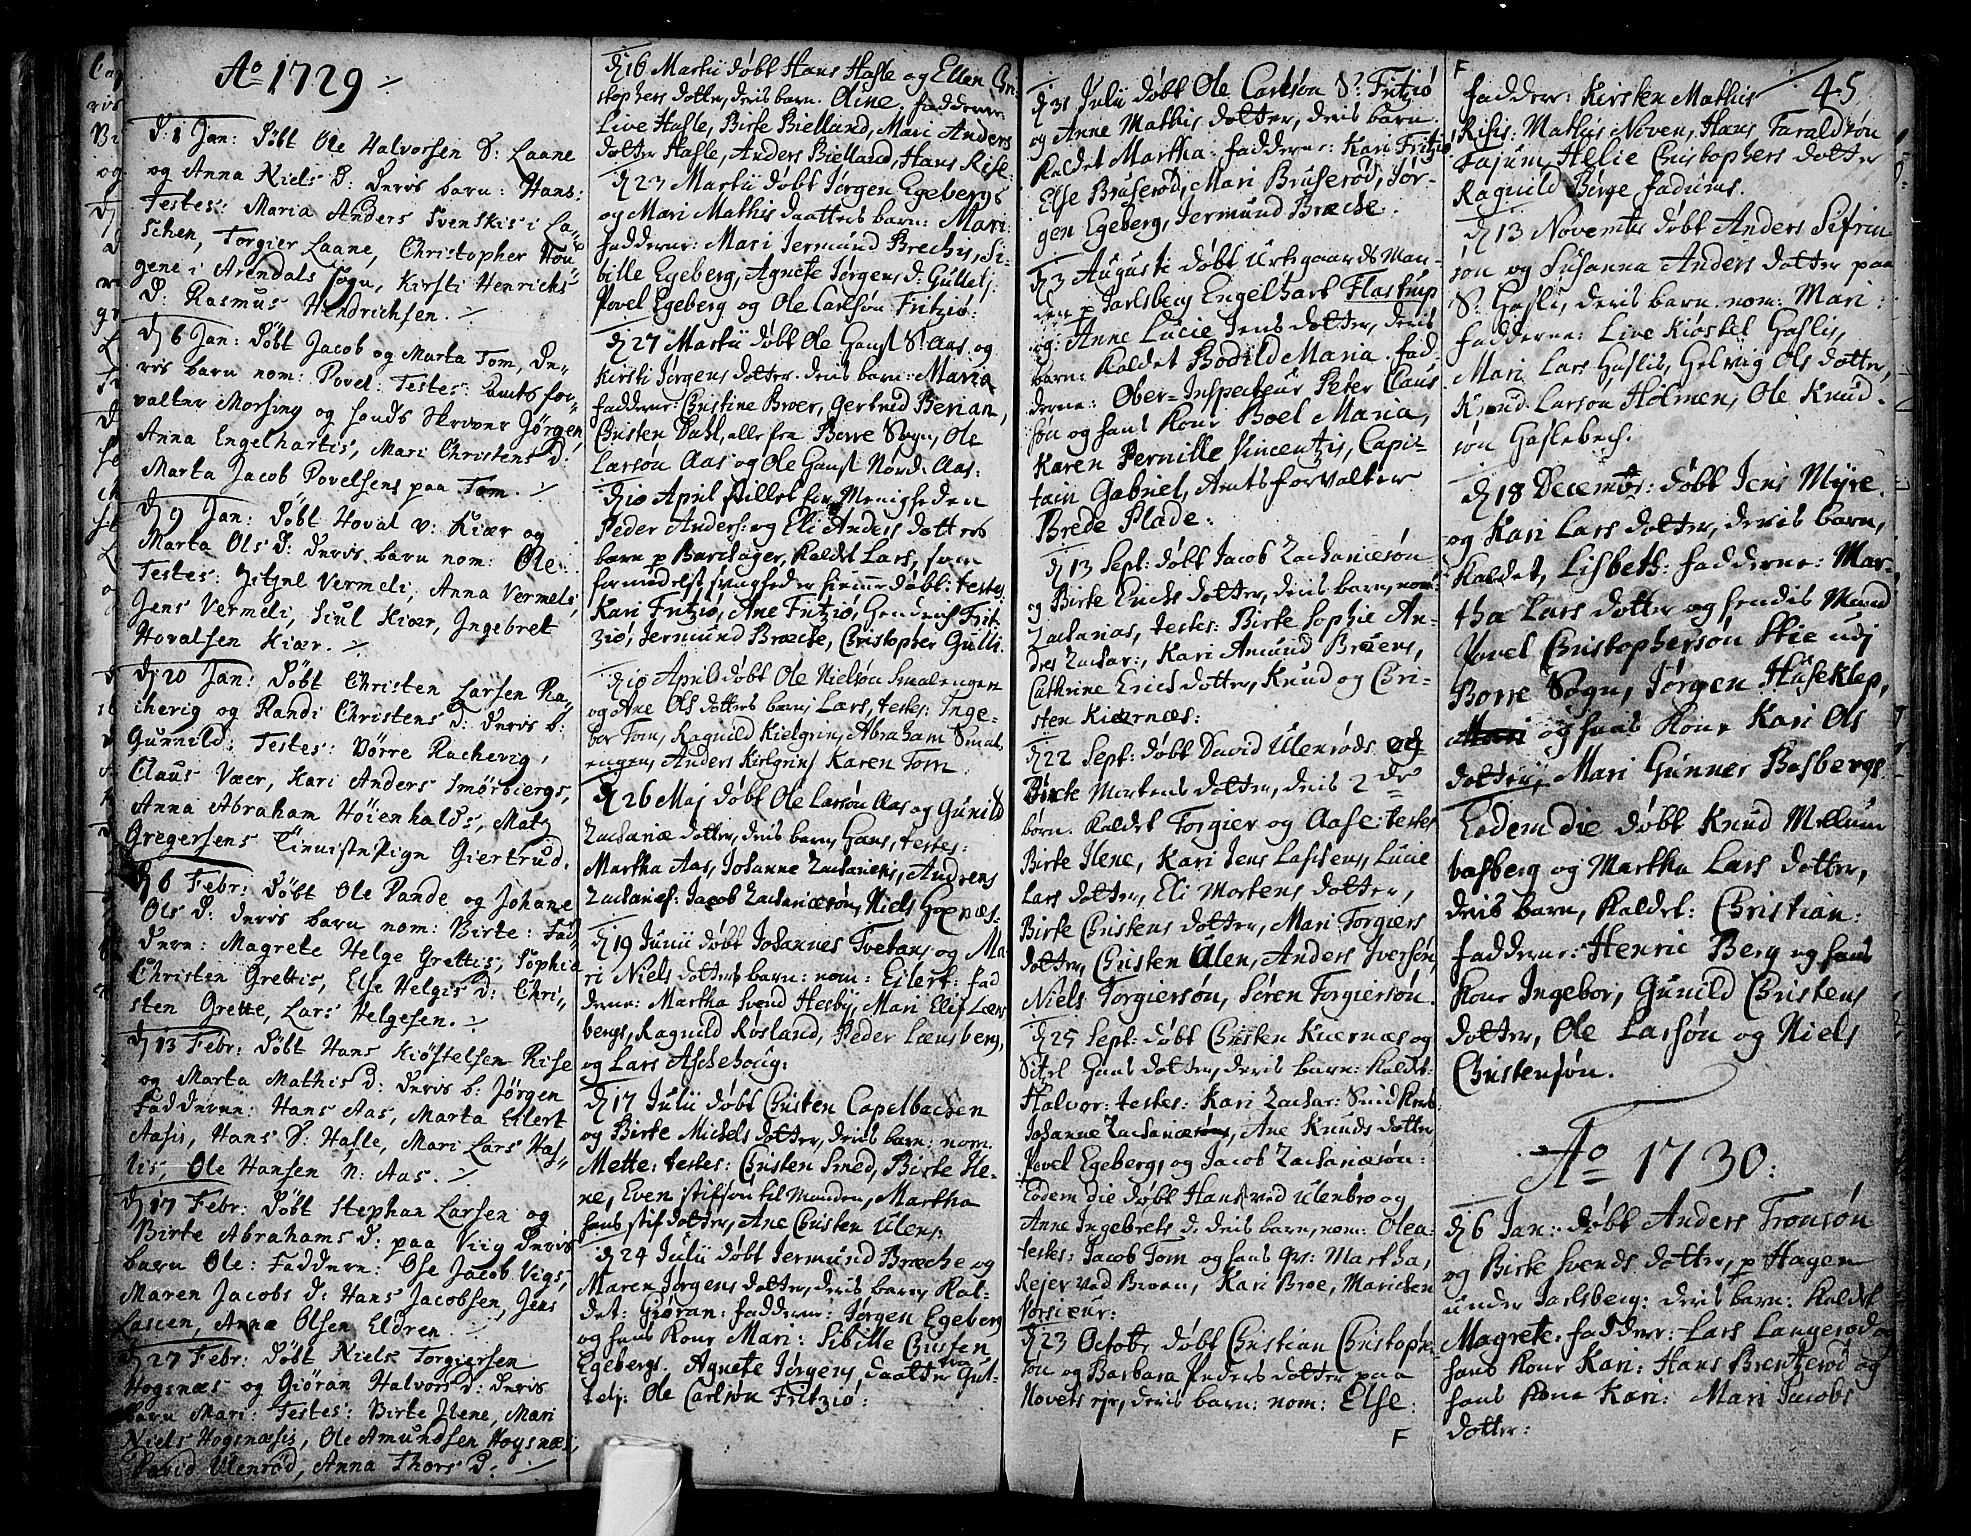 Ao 1729
D. 1 Jan: Døbt Ole Halvorsen S: Laane
og Anna Niels D: deris barn: Hans:
Testes: Maria Anders Svenskis i La-
schen, Torgier Laane, Christopher Hou-
gene i Arendals Sogn, Kirsti Henrichs
D: Rasmus Hendrichsen.
D 6 Jan: Døbt Jacob og Marta Tom, De-
ris barn nom: Povel: Testes: Amts for-
valter Morsing og Jonas Skriver Jørgen,
Anna Engelhartis, Mari Christens D:
Marta Jacob Povelsens paa Tom.
D 9 Jan: Døbt Hoval v: Kiær og
Marta Ols D: deris barn nom: Ole:
Testes: Vermeli, Anna Vermels,
Jens Vermeli, Siul Kiær, Ingebret
Hovalsen Kiær.
D 20 Jan: Døbt Christen Larsen Ra-
cherig og Randi Christens D: deris b:
Gunnild: Testes: Børre Racherig,
Claus Væer, Kari Anders Smørbiergs,
Anna Abraham Høienhalds, Matz
Gregersens Pige Giertrud.
D 6 Febr: Døbt Ole Pande og Johane
Ols D: deris barn nom: Birte: Fad-
dere: Magrete Helge Grettis, Sophie
Christen Grettis, Else Helgis D: Chri-
sten Grette, Lars Helgesen.
D 13 Febr: Døbt Hans Kiøstelsen Rise
og Marta Mathis D: deris b: Jørgen
Fadderne: Hans Aas, Marta Eilert
Aasis, Hans S: Hasle, Mari Lars Has-
lis, Ole Hansen N: Aas.
D 17 Febr: Døbt Stephan Larsen og
Birte Abrahams D: paa Viig deris
barn Ole: Faddere: Ose Jacob Vigs,
Maren Jacobs D: Hans Jacobsen, Jens
Lascen, Anna Olsen Eldren.
D 27 Febr: Døbt Niels Torgiersen
Hogsnæs og Giøran Halvors D: deris
barn Mari: Testes: Birte Ilene, Mari
Niels Hogsnæsis, Ole Amundsen Hogsnæs,
David Ulenrød, Anna Thors D:
D 16 Martii døbt Hans Hasle og Ellen Chri-
stophers dotter, deris barn. Oline. fadderne
Live Hasle, Birte Bielland, Mari Anders
dotter Hasle, Anders Bielland, Hans Rise.
D 23 Martii døbt Jørgen Egebergs
og Mari Mathis daatters barn: Mari:
fadderne: Mari Jermund Brechis, Si-
bille Egeberg, Agnete Jørgens D: Gullets,
Povel Egeberg og Ole Carlsøn Fritziø:
D 27 Martii døbt Ole Hans S: Aas, og
Kirsti Jørgens dotter. deris barn: Maria
fadderne: Christine Broer, Gertrud Berian,
Christen Dahl, alle fra Borre Sogn, Ole
Larsøn Aas og Ole Hans Nord: Aas:
D 10 April stillet for Menigheden
Peder Anders: og Eli Anders dotters
barn p Barchager, kaldet Lars, som
formedelst svaghed er hiemme døbt: testes:
Kari Fritziø, Ane Fritziø, Frit-
ziø, Jermund Bræche, Christopher Gulli.
D 10 April døbt Ole Nielsøn Smalengen
og Ane Ols dotters barn Lars, testes: Inge-
bor Tom, Ragnild Kielgrin, Abraham Smal-
engen, Anders Kielgrins, Karen Tom.
D 26 Maj døbt Ole Larsøn Aas og Gunild
Zachariæ dotter, deris barn Hans, testes:
Martha Aas, Johanne Zachariens, Andreas
Zacharies: Jacob Zachariesøn, Niels Hoenæs:
D 19 Junii døbt Johannes Tvetans og Ma-
ri Niels dotters barn: nom: Eilert: fad
derne: Martha Svend Hesby, Mari Elif Læns
bergs, Ragnild Røsland, Peder Lænsberg,
og Lars Aschehoug:
D 17 Julii døbt Christen Capelbachen
og Birte Michels dotter, deris barn: nom:
Mette: testes: Christen Smed, Birte Ile-
ne, Even stifsøn til Manden, Martha
hans stifdotter, Ane Christen Ulens:
D 24 Julii døbt Jermund Bræche og
Maren Jørgens dotter, deris barn, kal-
det: Giøran: fadderne: Jørgen Egeberg
og hans kone Mari: Sibille Christen
Egebergs. Agnete Jørgens daatter fra Gul-
lelj: Ole Carlsøn Fritziø:
D 31 Julii døbt Ole Carlsøn S: Fritziø
og Anne Mathis dotter, deris barn
kaldet Martha: fadderne: Kari Fritziø,
Else Bruserød, Mari Bruserød, Jør-
gen Egeberg, Jermund Bræche.
D 3 Augusti døbt Urtegaards Man-
den p Jarlsberg Engelhart Flastrup
og Anne Lucie Jens dotter, deris
barn: kaldet Bodild Maria. fad-
derne: Ober-Inspecteur Peter Claus
søn og hans kone Boel Maria,
Karen Pernille Vincentzis, Capi-
tain Gabriel, Amtsforvalter
Brede Plade:
D 13 Sept: døbt Jacob Zachariesøn
og Birte Erichs dotter, deris barn, nom:
Zacharias, testes: Birte Sophie An-
dres Zachar:, Kari Amund Brøens,
Cathrine Erics dotter, Knud og Chri-
sten Kiærnæs:
D 22 Sept: døbt David Ulenrøds og
Birte Mortens dotter, deris 2de
børn. kaldet Torgier og Aase: testes
Birte Ilene, Kari Jens Lassens, Lucie
Lars dotter, Eli Mortens dotter,
Birte Christens dotter, Mari Torgiers
dotter, Christen Ulen, Anders Iversøn,
Niels Torgiersøn, Søren Torgiersøn.
D 25 Sept: døbt Christen Kiernæs og
Sitzel Hans dotter, deris barn: kaldt:
Halvor: testes: Kari Zachar:
Johanne Zachariesøns, Ane Knuds dotter
Povel Egeberg, og Jacob Zachariesøn:
Eodem die døbt Hans ved Ulenbro og
Anne Ingebrets D. deris barn, nom: Olea:
testes: Jacob Tom og hans qv: Martha,
Rejer ved Broen, Kari Broe, Marichen
D 23 Octobr døbt Christian Christopher-
søn og Barbara Peders dotter paa
Hovets eje, deris barn: nom: Else:
F
F
45
fadder: Kirsten Mathis
Risis: Mathis Noven, Hans Taraldsøn
Fajum, Allie Christophers dotter
Ragnild Børge fadums.
D 13 Novembr døbt Anders Sifrin
søn og Susanna Anders dotter paa
S: Hasli, deris barn. nom: Mari:
fadderne: Live Kiøstel Haslis,
Mari Lars Haslis, Helvig Ols dotter,
Knud Larsøn Holmen, Ole Knud-
søn Haslebech.
D 18 Decembr: døbt Jens Myre
og Kari Lars dotter, deris barn,
kaldet, Lisbeth: fadderne: Mar-
tha Lars dotter og hendis Mand
Povel Christophersøn Skie udj
Borre Sogn, Jørgen Huseklep,
Mari og hans kone Kari Ols
dotter, Mari Gunner Basbergs.
Eodem die døbt Knud Mellum
basberg og Martha Lars dotter,
deris barn, kaldet: Christian:
fadderne: Henric Berg og hans
kone Ingebor, Gunild Christens
dotter, Ole Larsøn og Niels
Christensøn.
Ao 1730:
D 6 Jan: døbt Anders Tronsøn
og Birte Svends dotter, p Hagen
under Jarlsberg: deris barn: kaldet
Magrete: fadder: Lars Langerød og
hans kone Kari: Hans Brentzerød og
hans kone Kari: Mari Jacobs
dotter: